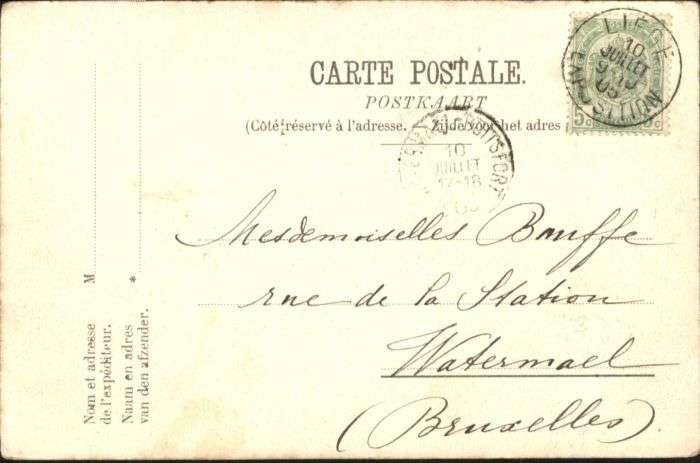 CARTE POSTALE.
POSTKAART
(Côté réservé à l'adresse. — Zijde voor het adres
LIÉGE
10
JUILLET
10
JUILLET
17-18
BOITSFORT
Mesdemoiselles Bouffe
rue de la Station
Watermael
(Bruxelles)
M
*
Nom et adresse
de l'expéditeur.
Naam en adres
van den afzender.